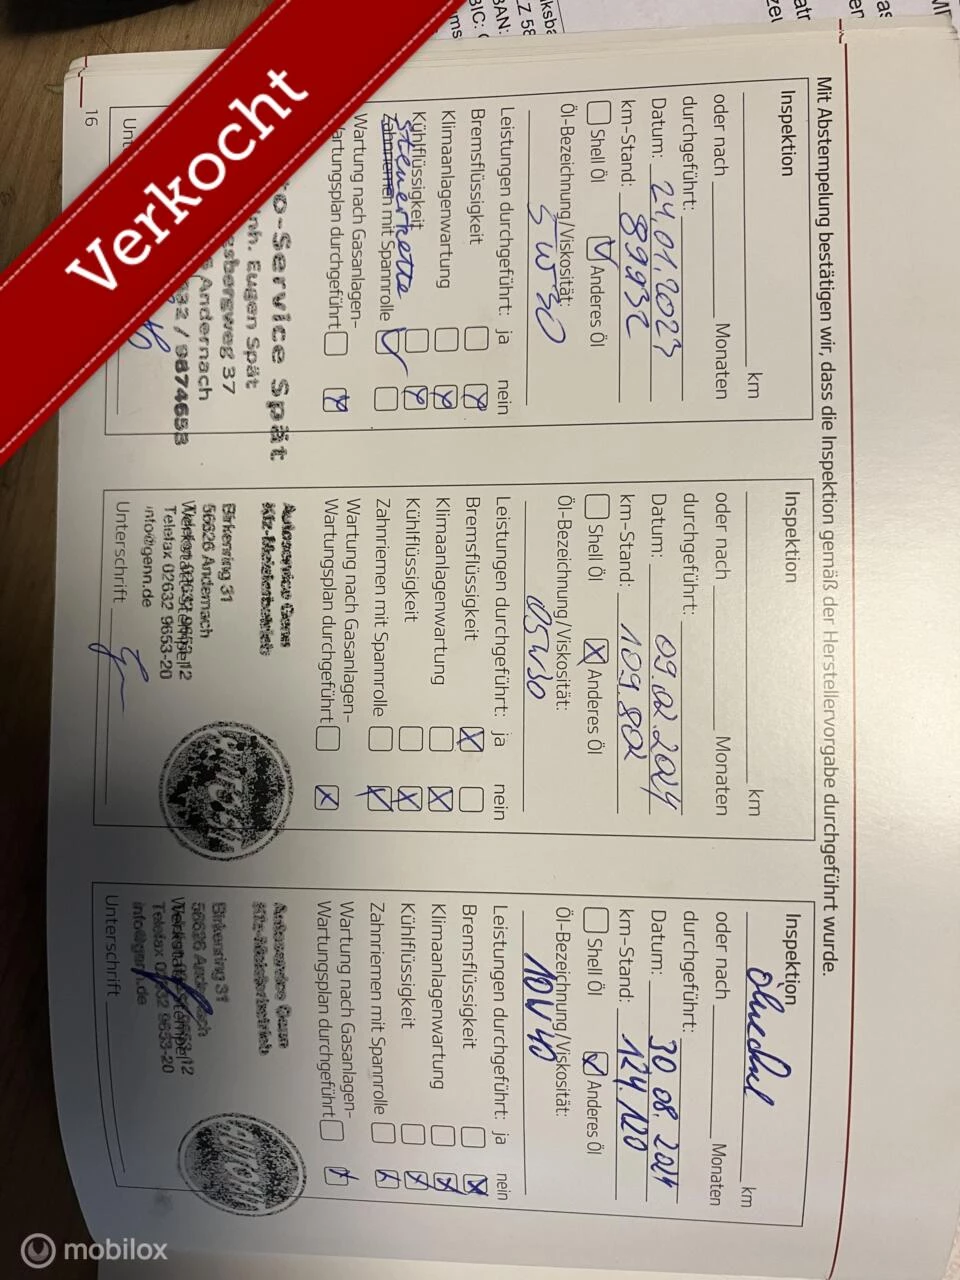 Verkocht
Mit Abstempelung bestätigen wir, dass die Inspektion gemäß der Herstellervorgabe durchgeführt wurde.
Inspektion
km
oder nach Monaten
durchgeführt:
Datum: 24.01.2023
km-Stand: 89932
Shell Öl Anderes Öl
Öl-Bezeichnung/Viskosität:
5W30
Leistungen durchgeführt: ja nein
Bremsflüssigkeit
Klimaanlagenwartung
Kühlflüssigkeit
Steuerkette
Zahnriemen mit Spannrolle
Wartung nach Gasanlagen-
Wartungsplan durchgeführt
to-Service Spät
nh. Eugen Spät
esbergweg 37
Andernach
32 / 9874658
Unt
16
Inspektion
km
oder nach Monaten
durchgeführt:
Datum: 09.02.2024
km-Stand: 109.802
Shell Öl Anderes Öl
Öl-Bezeichnung/Viskosität:
05W30
Leistungen durchgeführt: ja nein
Bremsflüssigkeit
Klimaanlagenwartung
Kühlflüssigkeit
Zahnriemen mit Spannrolle
Wartung nach Gasanlagen-
Wartungsplan durchgeführt
Autoservice Genn
Kfz-Meisterbetrieb
Birkenring 31
56626 Andernach
Telefax 02632 9653-20
info@genn.de
Unterschrift
Inspektion
km
oder nach Monaten
durchgeführt:
Datum: 30.08.2024
km-Stand: 124.120
Shell Öl Anderes Öl
Öl-Bezeichnung/Viskosität:
10W40
Leistungen durchgeführt: ja nein
Bremsflüssigkeit
Klimaanlagenwartung
Kühlflüssigkeit
Zahnriemen mit Spannrolle
Wartung nach Gasanlagen-
Wartungsplan durchgeführt
Autoservice Genn
Kfz-Meisterbetrieb
Birkenring 31
56626
9653-20
Unterschrift
mobilox